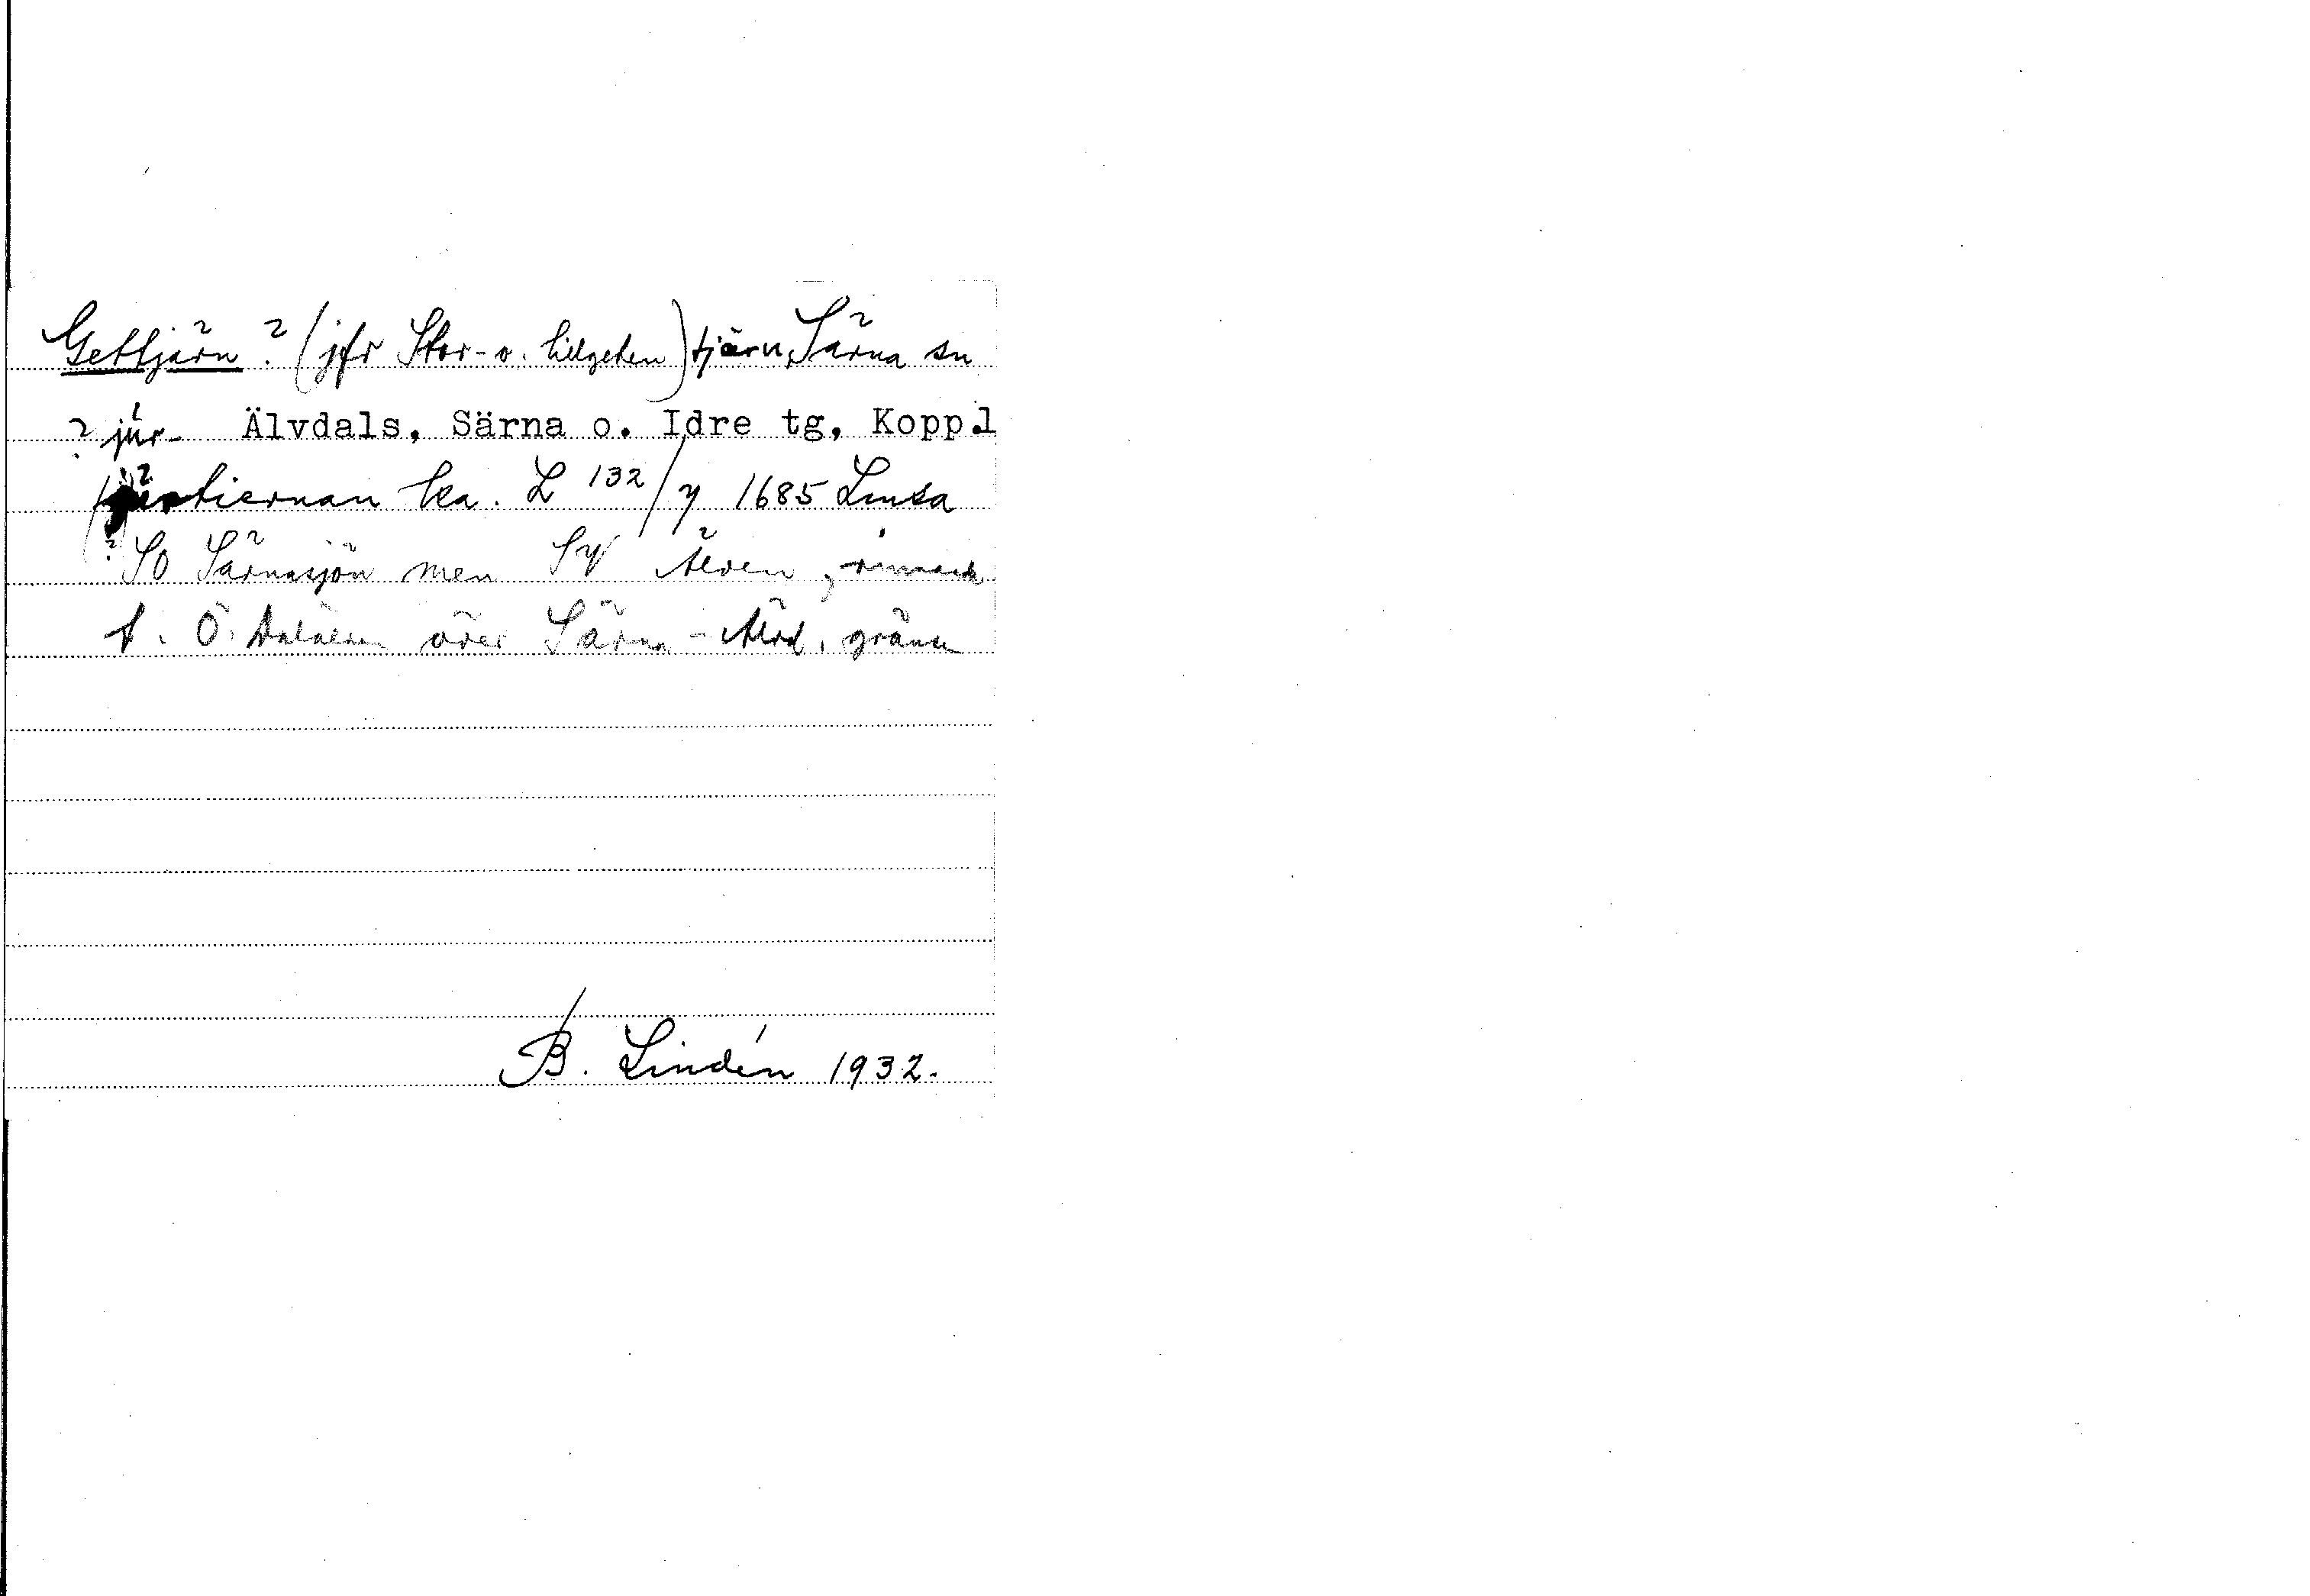 Gettjärn? (jfr Stor- o. Lillgeten) tjärn, Särna sn
? jur- Älvdals, Särna o. Idre tg, Kopp.l
tiernan ka. L 132/y 1685 Lmsa
? SO Särnasjön men SV älven, rinnande
t. Ö. Dalälven över Särna - Älvd. gränsen
B. Lindén 1932.